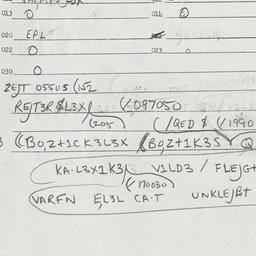 013 O 014
020 EPL
022 O 023 o
030 O
2EJT 055U5 (152
REJT3R $L3X/ (/-097050
(205)
(/QED $ (/1990
((B0,2+1CK3L3X (B0,2+1K3S Q
KA.L3X1K3/ V1LD3 / FLEJG+
(/170030)
(VARFN E,L3L CA.T UNKLEJBT